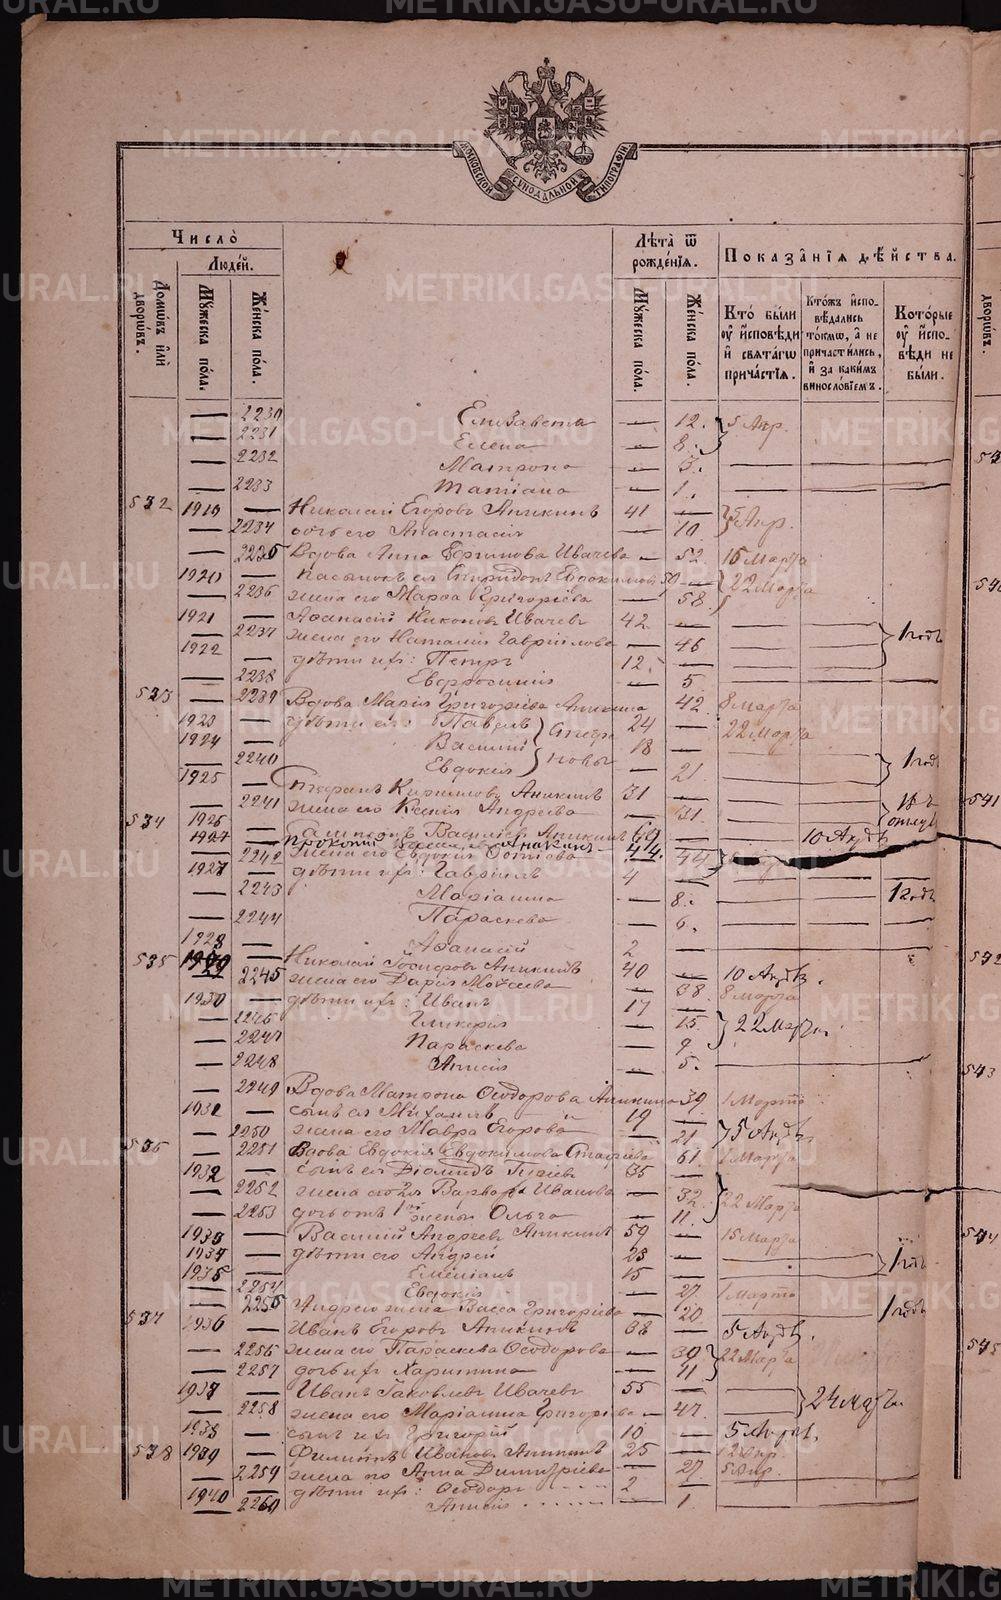 МОСКОВСКОЙ СѴНОДАЛЬНОЙ ТИПОГРАФІИ
Число̀
Людей.
Домѡвъ или дворѡвъ.
Мꙋжеска пола.
Женска пола.
Лѣта ѿ рожденїя.
Мꙋжеска пола.
Женска пола.
Показанїя дѣйства.
Кто были ᲂу исповѣди и святагѡ причастїя.
Ктожъ исповѣдались токмѡ, а не причастились, и за какимъ винословїемъ.
Которые ᲂу исповѣди не были.
— 2230 Елизавета — 12. 5 Апр.
— 2231 Елена — 8.
— 2232 Матрона — 3. — — —
— 2233 Татіана — 1. — — —
532 1919 — Николай Егоровъ Аникинъ 41 —
— 2234 дочь его Анастасія — 10. 5 Апр.
— 2235 Вдова Анна Ефимова Ивачева — 52 15 Марта
1920 — Пасынокъ ея Спиридонъ Евдокимовъ 59 — 22 Марта
— 2236 жена его Марѳа Григоріева — 58.
1921 — Аѳанасій Никоновъ Ивачевъ 42 —
— 2237 жена его Наталія Гавріилова — 45 — — 1 годъ
1922 — дѣти ихъ: Петръ 12. —
— 2238 Евфросинія — 5
533 — 2239 Вдова Марія Григоріева Аникина — 42. 8 Марта
1923 — дѣти ея: Павелъ 24 — 22 Марта
1924 — Василій 18 —
— 2240 Евдокія — 21. — — 1 годъ
1925 — Стефанъ Кирилловъ Аникинъ 31 —
— 2241 жена его Ксенія Андреева — 31.
534 1926 — Василіевъ Аникинъ 69 — 10 Апр
1927 — Прокопій Аникинъ 44.
— 2242 жена его Евдокія — 44
1927 — дѣти ихъ: Гавріилъ 4 — — —
— 2243 Маріанна — 8. — — 1 годъ
— 2244 Параскева — 6. — — —
1928 — Аѳанасій 2 — — —
535 1929 — Николай Аникинъ 40 — 10 Апр.
— 2245 жена его Дарія — 38. 8 Марта
1930 — дѣти ихъ: Иванъ 17 —
— 2246 Гликерія — 15. 22 Марта.
— 2247 Параскева — 9.
— 2248 Анисія — 5. — — —
— 2249 Вдова Матрона Ѳеодорова Аникина — 39 1 Марта
1931 — сынъ ея Михаилъ 19 —
— 2250 жена его Мавра Егорова — 21 5 Апр.
536 — 2251 Вдова Евдокія Евдокимова — 61. Марта
1932 — сынъ ея Діомидъ 35 —
— 2252 жена его 2я Варвара Иванова — 32. 22 Марта
— 2253 дочь отъ 1й жены Ольга — 11.
1933 — Василій Андреевъ Аникинъ 59 — 15 Марта
1934 — дѣти его Андрей 23 — — — 1 годъ
1935 — Емиліанъ 15 —
— 2254 Евдокія — 27 1 Марта
— 2255 Андрею жена Васса Григоріева — 20 — — 1 годъ
537 1936 — Иванъ Егоровъ Аникинъ 38 — 5 Апр.
— 2256 жена его Параскева Ѳеодорова — 39 22 Марта
— 2257 дочь ихъ Харитина — 11
1937 — Иванъ Іаковлевъ Ивачевъ 55 —
— 2258 жена его Маріанна Григоріева — 47. — 24 Мар.
1938 — сынъ ихъ Григорій 10 — 5 Апр.
538 1939 — Филиппъ Ивановъ Аникинъ 25 — 12 Апр.
— 2259 жена его Анна Димитріева — 27. 5 Апр.
1940 — дѣти ихъ: Ѳеодоръ 2 —
— 2260 Анисія — 1.